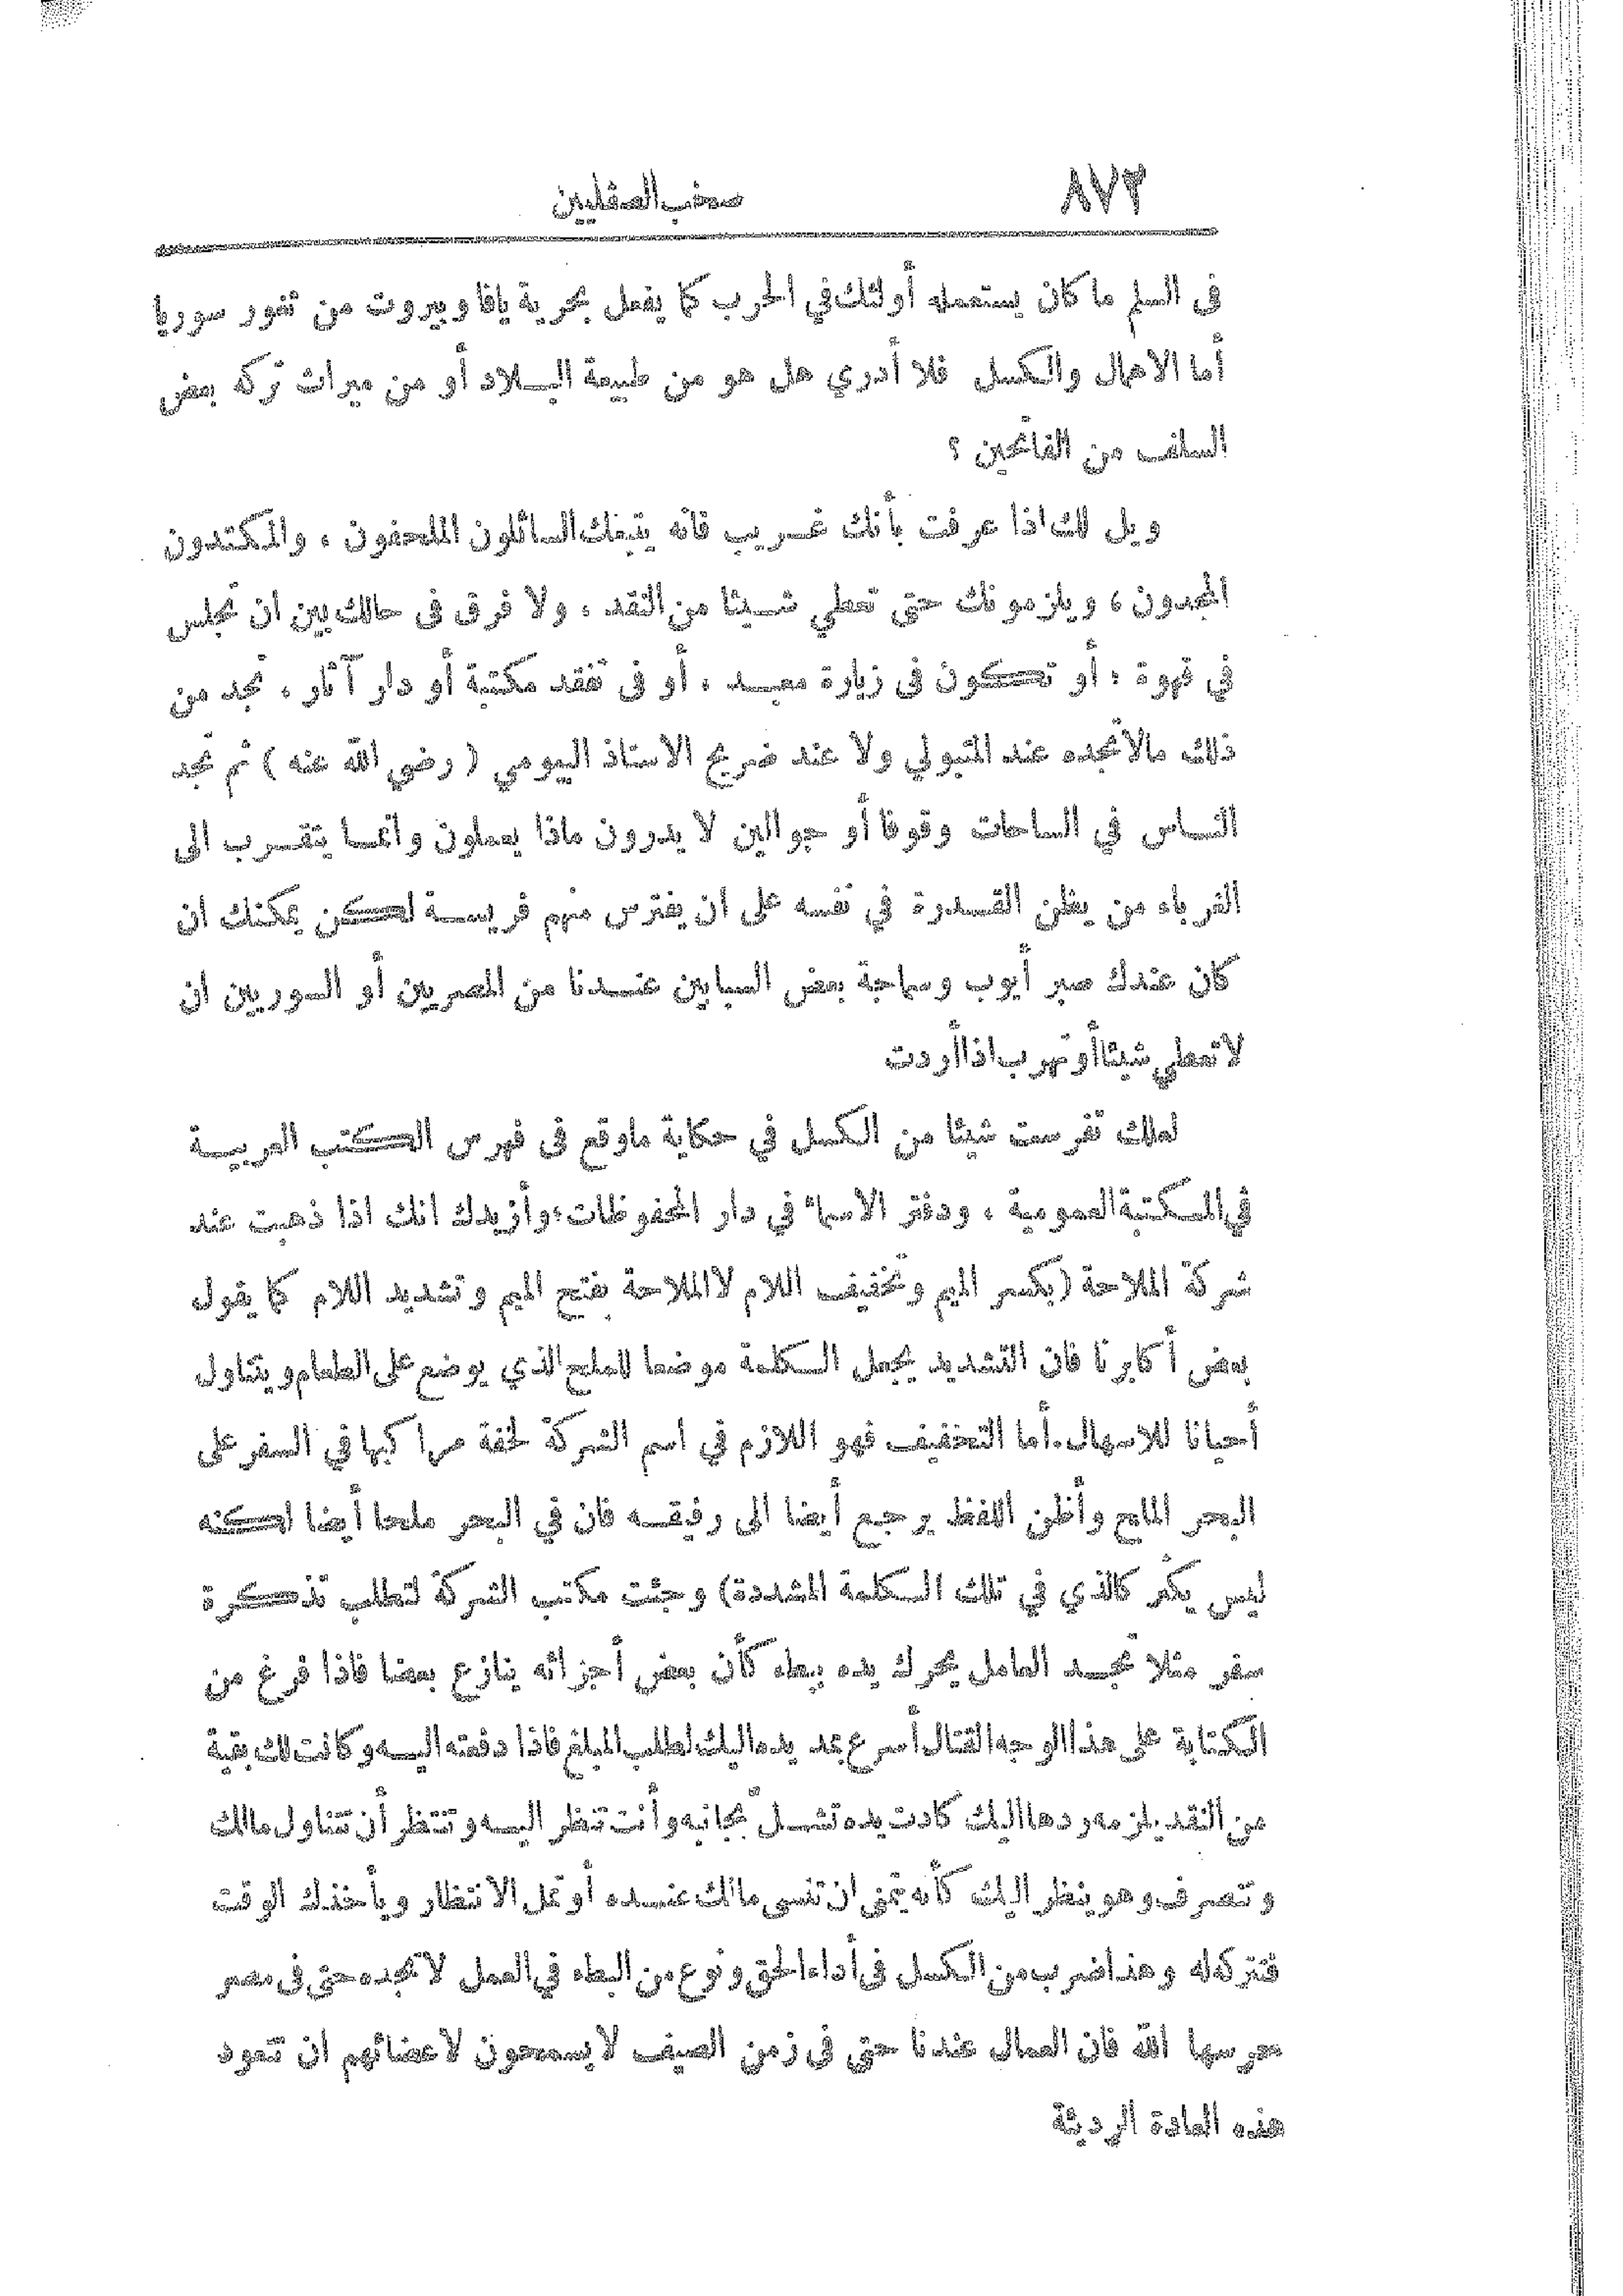 ٨٧٢
صخب الصقليين
فى السلم ما كان يستعمله أولئك في الحرب كما يفعل بحرية يافا وبيروت من ثغور سوريا
أما الاهمال والكسل فلا أدري هل هو من طبيعة البلاد أو من ميراث تركه بعض
السلف من الفاتحين ؟
ويل لك اذا عرفت بأنك غريب فانه يتبعك السائلون الملحفون ، والمكتدون
المجدون ، ويلزمونك حتى تعطي شيئا من النقد ، ولا فرق فى حالك بين ان تجلس
في قهوة ؛ أو تكون فى زيارة معبد ، أو فى تفقد مكتبة أو دار آثار ، تجد من
ذلك مالا تجده عند المتبولي ولا عند ضريح الاستاذ البيومي ( رضي الله عنه ) ثم تجد
الناس في الساحات وقوفا أو جوالين لا يدرون ماذا يعملون وانما يتقرب الى
الغرباء من يظن القدرة في نفسه على ان يفترس منهم فريسة لكن يمكنك ان
كان عندك صبر أيوب وسماجة بعض السبابين عندنا من المصريين أو السوريين ان
لا تعطي شيئا أو تهرب اذا أردت
لعلك تفرست شيئا من الكسل في حكاية ما وقع فى فهرس الكتب العربية
في المكتبة العمومية ، ودفتر الاسماء في دار المحفوظات ؛ وأزيدك انك اذا ذهبت عند
شركة الملاحة (بكسر الميم وتخفيف اللام لا الملاحة بفتح الميم وتشديد اللام كما يقول
بعض أكابرنا فان التشديد يجعل الكلمة موضعا للملح الذي يوضع على الطعام ويتناول
أحيانا للاسهال. أما التخفيف فهو اللازم في اسم الشركة لخفة مراكبها في السفر على
البحر المالح وأظن اللفظ يرجع أيضا الى رفيقه فان في البحر ملحا أيضا لكنه
ليس يكثر كالذي في تلك الكلمة المشددة) وجئت مكتب الشركة لتطلب تذكرة
سفر مثلا تجد العامل يحرك يده ببطء كأن بعض أجزائه ينازع بعضا فاذا فرغ من
الكتابة على هذا الوجه القتال أسرع بمد يده اليك لطلب المبلغ فاذا دفعته اليه وكانت لك بقية
من النقد يلزمه ردها اليك كادت يده تشل بجانبه وأنت تنظر اليه وتنتظر أن تتناول مالك
وتصرف وهو ينظر اليك كأنه يتمنى ان تنسى مالك عنده أو تمل الانتظار ويأخذك الوقت
فتتركه له وهذا ضرب من الكسل فى أداء الحق ونوع من البطء في العمل لا تجده حتى فى مصر
حرسها الله فان العمال عندنا حتى فى زمن الصيف لا يسمحون لاعضائهم ان تتعود
هذه العادة الرديئة